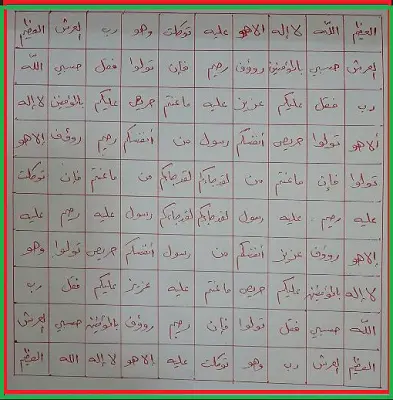 العظيم الله لا إله الاهو عليه توكلت وهو رب العرش العظيم
العرش حسبي بالمؤمنين رووف رحيم فإن تولوا فقل حسبي الله
رب فقل عليكم عزيز عليه ماعنتم حريص عليكم بالمؤمنين لا إله
ألاهو تولوا حريص أنفسكم رسول من أنفسكم رحيم رووف إلاهو
تولوا فإن ماعنتم من لقدجاءكم لقدجاءكم من ماعنتم فإن توكلت
عليه رحيم عليه رسول لقدجاءكم لقدجاءكم رسول عليه رحيم عليه
إلاهو رووف عزيز أنفسكم من رسول أنفسكم حريص تولوا وهو
لا إله بالمؤمنين عليكم حريص ماعنتم عليه عزيز عليكم فقل رب
الله حسبي فقل تولوا فإن رحيم رووف بالمؤمنين حسبي العرش
العظيم العرش رب وهو توكلت عليه إلاهو لا إله الله العظيم